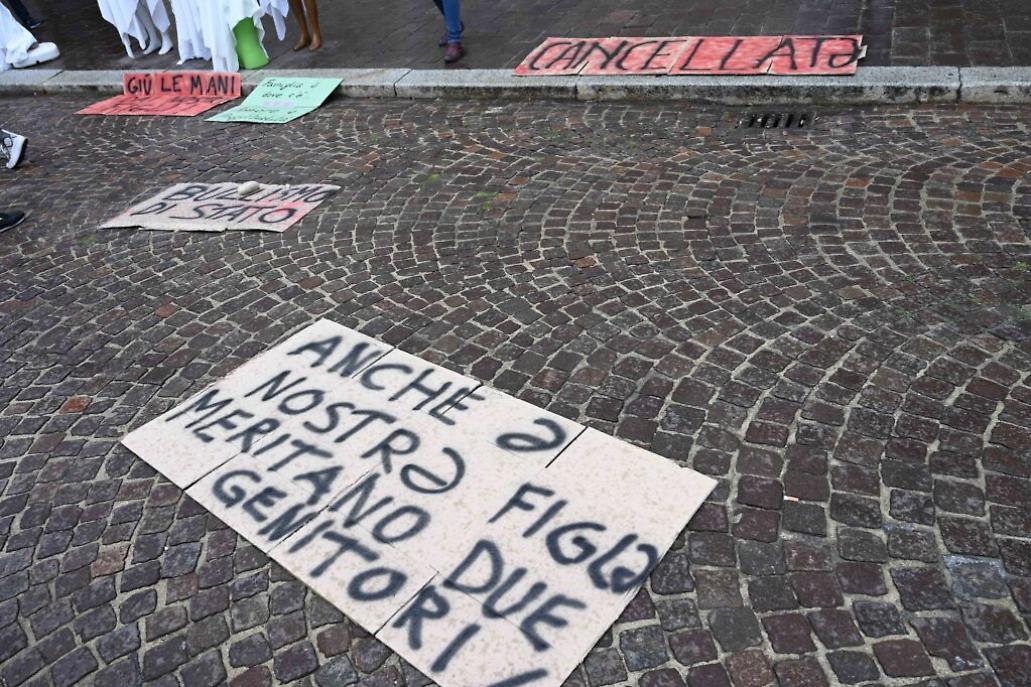 CANCELLATƏ
GIÙ LE MANI
Famiglia è
dove c'è
BULLISMO
DI STATO
ANCHE Ə
NOSTRƏ FIGLƏ
MERITANO DUE
GENITORI!